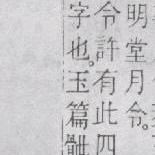 明堂月令。
令許有此四
字也。玉篇